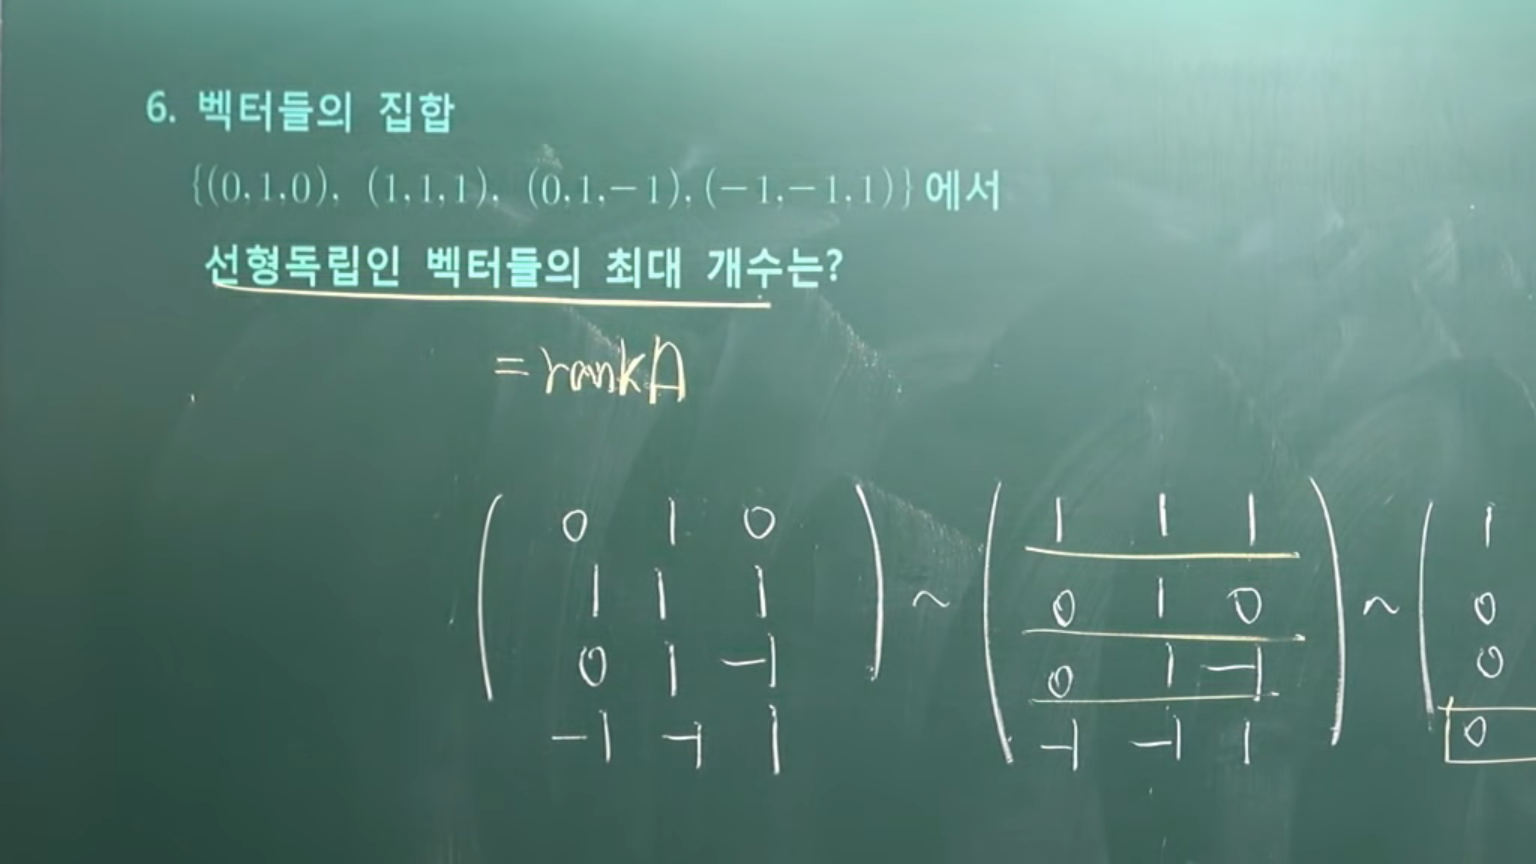 6. 벡터들의 집합
{(0,1,0), (1,1,1), (0,1,−1), (−1,−1,1)}에서
선형독립인 벡터들의 최대 개수는?
= rankA
0 1 0 1 1 1 1
1 1 1 ~ 0 1 0 ~ 0
0 1 −1 0 1 −1 0
−1 −1 1 −1 −1 1 0